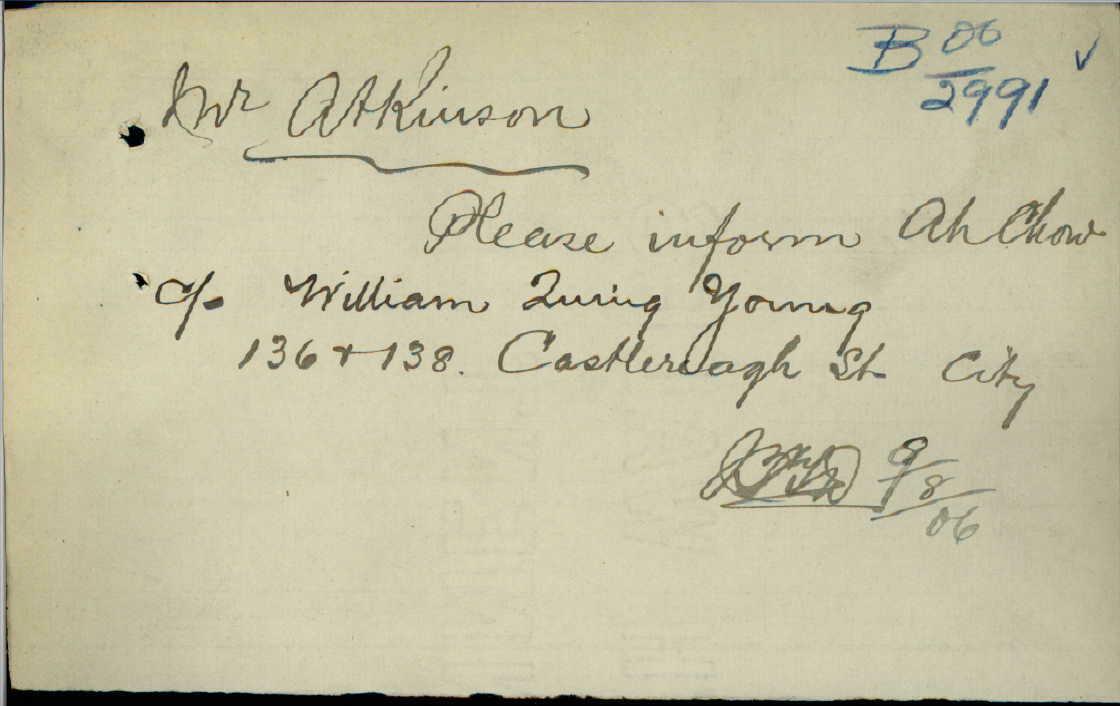 B 06/2991 ✓
Mr Atkinson
Please inform Ah Chow
c/o William Quing Young
136 + 138. Castlereagh St City
9/8/06